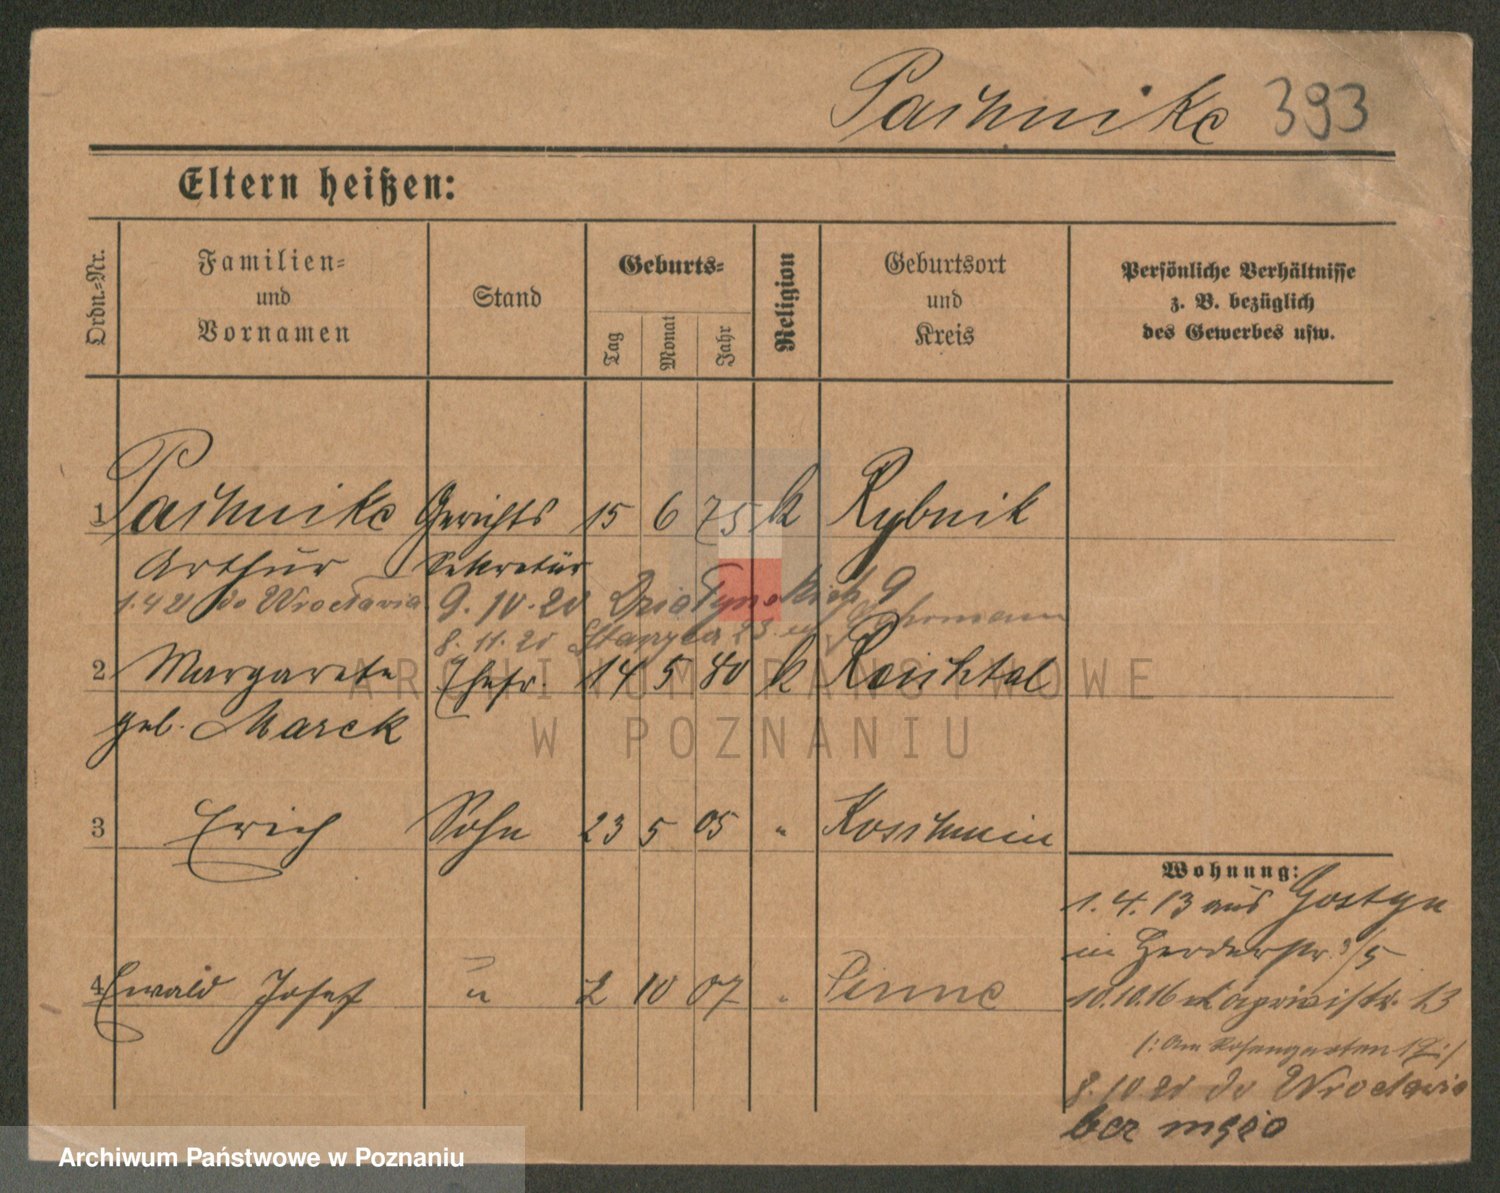 Paschnike 393
Eltern heißen:
Ordn.-Nr.
Familien-
und
Vornamen
Stand
Geburts-
Tag
Monat
Jahr
Religion
Geburtsort
und
Kreis
Persönliche Verhältnisse
z. B. bezüglich
des Gewerbes usw.
1 Paschnike Gerichts 15 6 75 k Rybnik
Arthur Sekretär
1.4 21 do Wrocławia 9. 10. 20 Działyńskich 9
8. 11. 21 23
2 Margarete Ehefr. 14 5 80 k Reichtal
geb. Marck
3 Erich Sohn 23 5 05 " Koschmin
4 Ewald Josef " 2 10 07 " Pinne
Wohnung:
1. 4. 13 aus Gostyn
in Herderstr. 3/5
10.10.16 Caprivistr. 13
(: Am Rosengarten 17 :)
8. 10 21 do Wrocławia
bez męża
ARCHIWUM PAŃSTWOWE
W POZNANIU
Archiwum Państwowe w Poznaniu